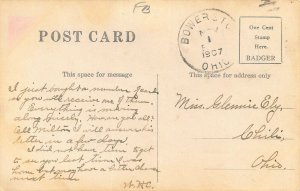 FB
POST CARD
This space for message
This space for address
BOWERSTO
1907
OHIO
One Cent
Stamp
Here.
BADGER
I just bought a number Cards
so you will receive one of them.
Everything is making
along nicely. How are you all?
Tell Milton I will answer his
letter in a few days.
I did not have time to get
to see you last time I was
home but may have a better chance
next time.
Miss Clemie Ely,
Chili,
Ohio.